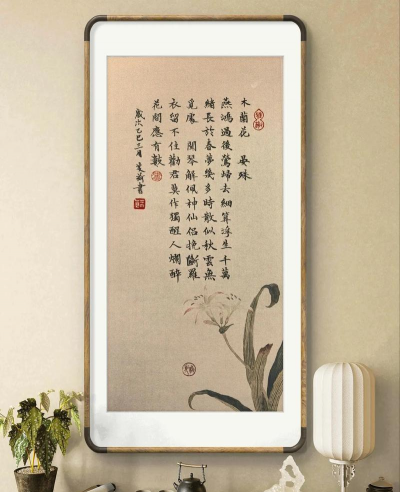 木蘭花 晏殊
燕鴻過後鶯歸去細算浮生千萬
緒長於春夢幾多時散似秋雲無
覓處 聞琴解佩神仙侶挽斷羅
衣留不住勸君莫作獨醒人爛醉
花間應有數
歲次乙巳三月 書